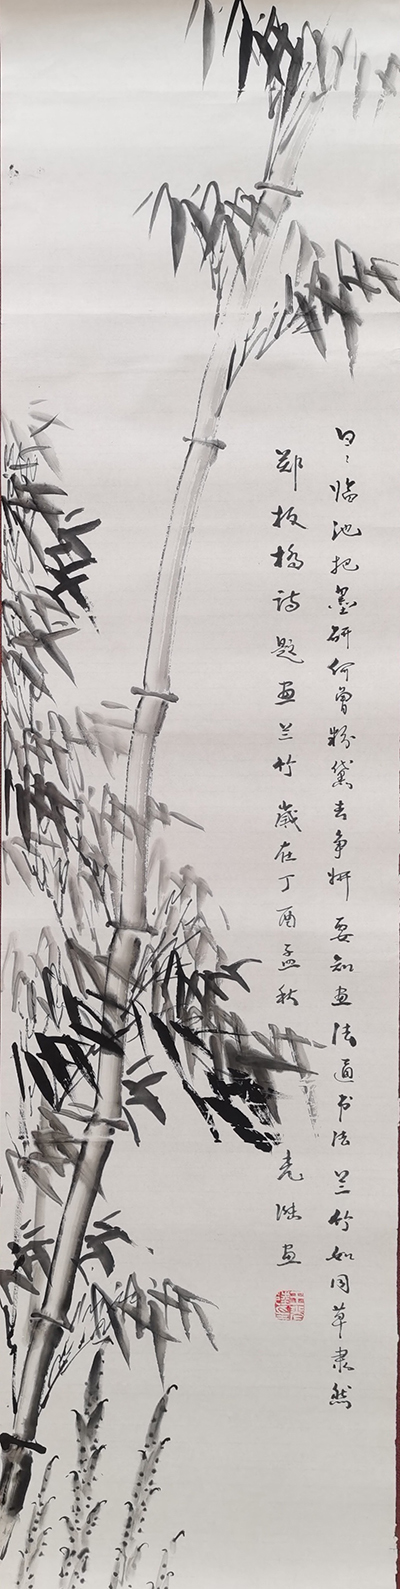 日日临池把墨研何曾粉黛去争妍要知画法通书法兰竹如同草隶然
郑板桥诗题画兰竹岁在丁酉孟秋
画